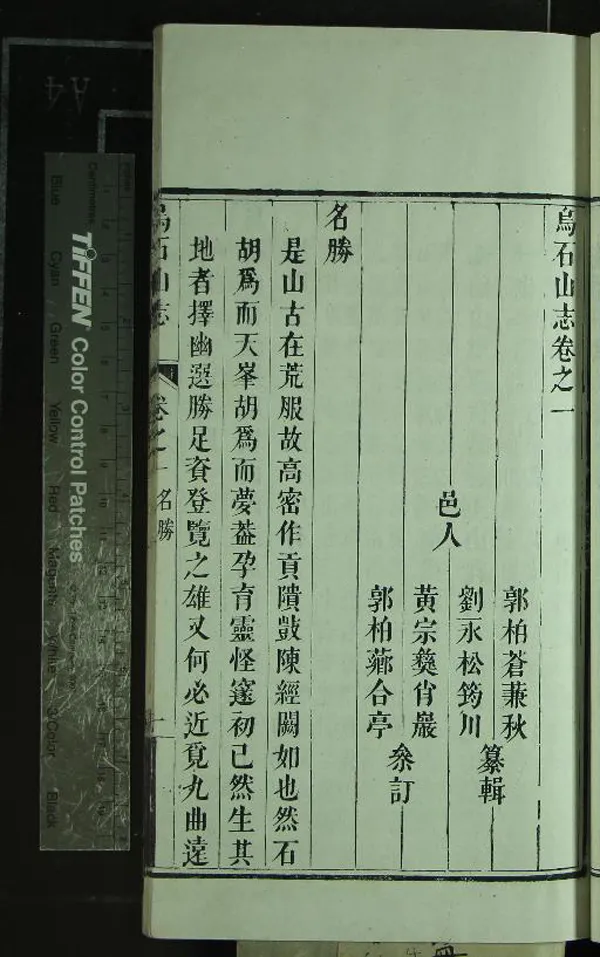 烏石山志卷之一
郭柏蒼蒹秋
劉永松筠川
纂輯
邑人
黃宗彝肖巖
郭柏薌合亭
叅訂
名勝
是山古在荒服故高密作貢隤㪣陳經闕如也然石
胡為而天峯胡為而夢葢孕育靈怪邃初已然生其
地者擇幽選勝足資登覽之雄又何必近覓九曲遠
烏石山志
卷之一
名勝
TIFFEN Color Control Patches
Centimetres
Blue
Cyan
Green
Yellow
Red
Magenta
White
3/Color
Black
A4